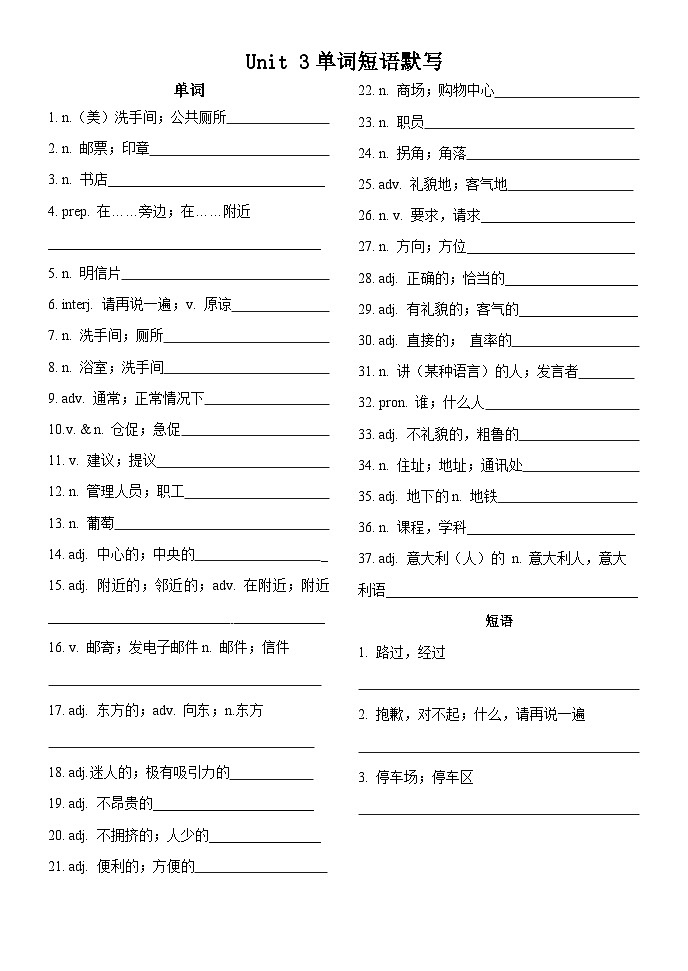 Unit 3单词短语默写
单词
1. n.（美）洗手间；公共厕所
2. n. 邮票；印章
3. n. 书店
4. prep. 在……旁边；在……附近
5. n. 明信片
6. interj. 请再说一遍；v. 原谅
7. n. 洗手间；厕所
8. n. 浴室；洗手间
9. adv. 通常；正常情况下
10.v. & n. 仓促；急促
11. v. 建议；提议
12. n. 管理人员；职工
13. n. 葡萄
14. adj. 中心的；中央的
15. adj. 附近的；邻近的；adv. 在附近；附近
16. v. 邮寄；发电子邮件n. 邮件；信件
17. adj. 东方的；adv. 向东；n.东方
18. adj.迷人的；极有吸引力的
19. adj. 不昂贵的
20. adj. 不拥挤的；人少的
21. adj. 便利的；方便的
22. n. 商场；购物中心
23. n. 职员
24. n. 拐角；角落
25. adv. 礼貌地；客气地
26. n. v. 要求，请求
27. n. 方向；方位
28. adj. 正确的；恰当的
29. adj. 有礼貌的；客气的
30. adj. 直接的； 直率的
31. n. 讲（某种语言）的人；发言者
32. pron. 谁；什么人
33. adj. 不礼貌的，粗鲁的
34. n. 住址；地址；通讯处
35. adj. 地下的n. 地铁
36. n. 课程，学科
37. adj. 意大利（人）的 n. 意大利人，意大
利语
短语
1. 路过，经过
2. 抱歉，对不起；什么，请再说一遍
3. 停车场；停车区